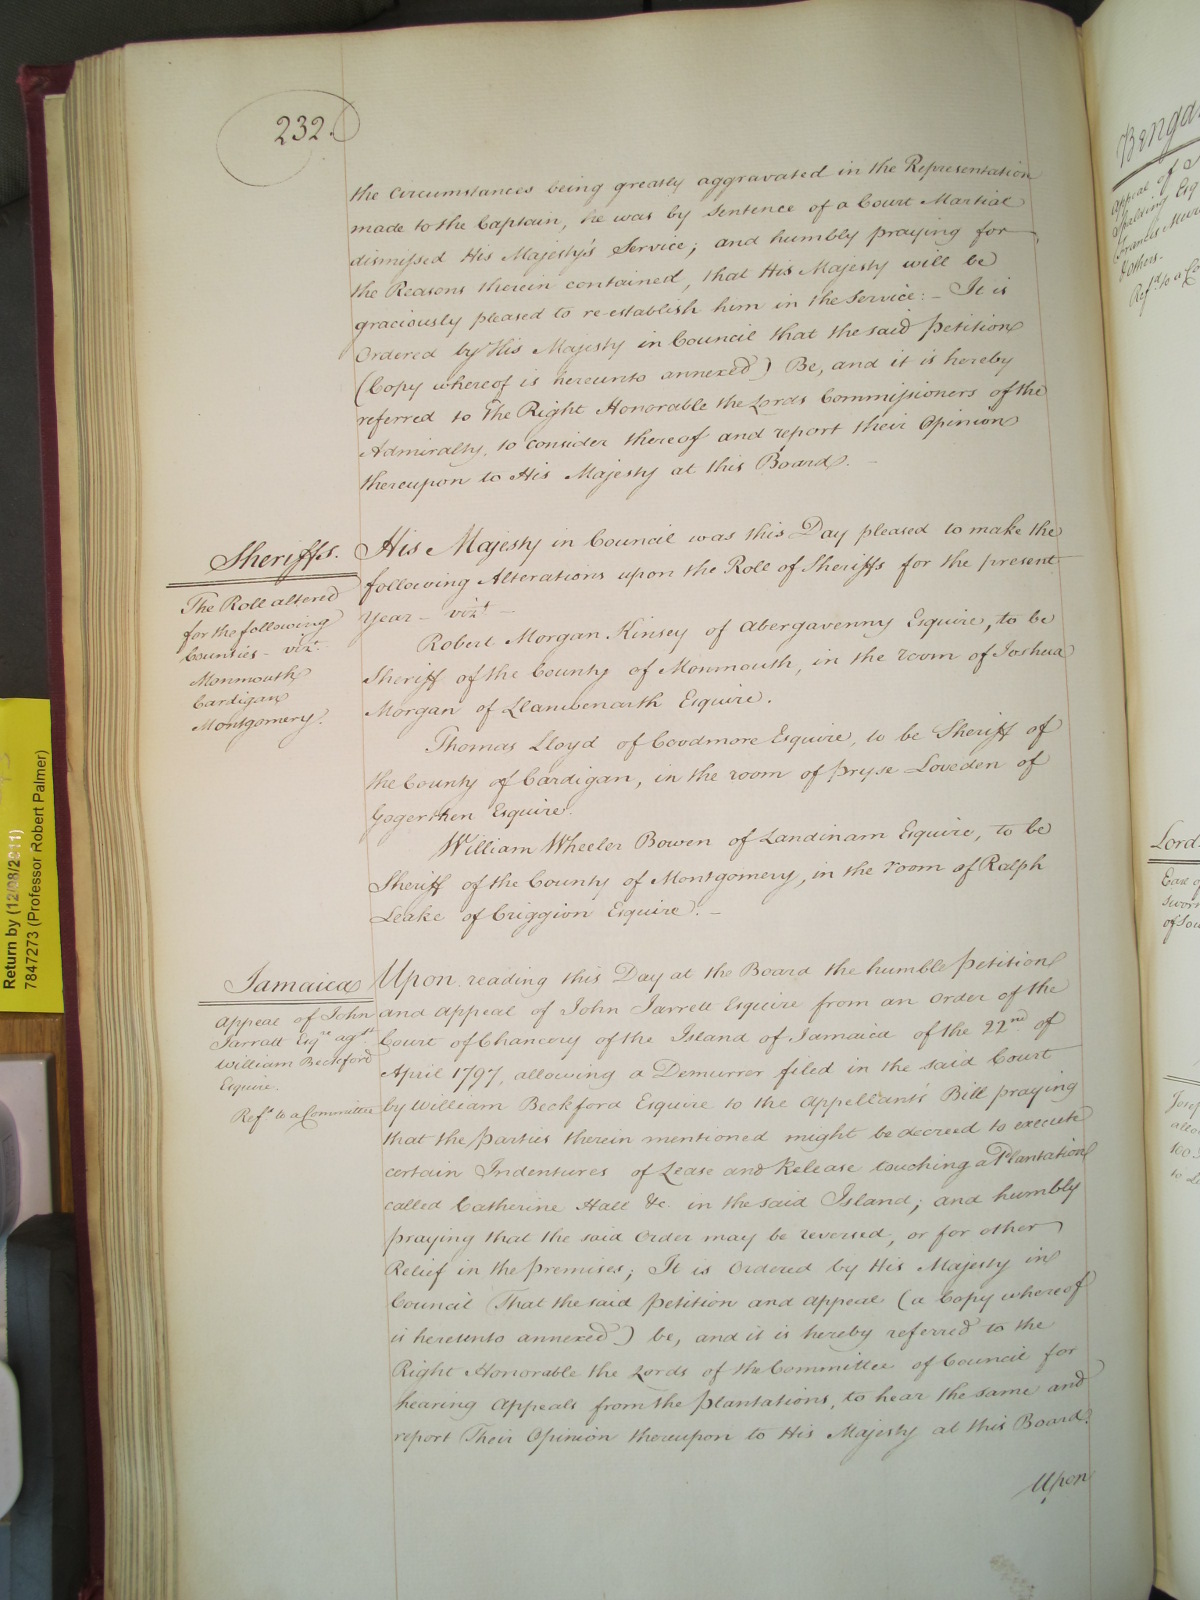 232.
the Circumstances being greatly aggravated in the Representation
made to the Captain, he was by Sentence of a Court Martial
dismissed His Majesty's Service; and humbly praying for
the Reasons therein contained, that His Majesty will be
graciously pleased to re-establish him in the Service: - It is
Ordered by His Majesty in Council that the said Petition
(Copy whereof is hereunto annexed) Be, and it is hereby
referred to The Right Honorable the Lords Commissioners of the
Admiralty, to consider thereof and report their Opinion
thereupon to His Majesty at this Board. -
Sheriffs.
The Roll altered
for the following
Counties - vizt.
Monmouth
Cardigan
Montgomery.
His Majesty in Council was this Day pleased to make the
following Alterations upon the Roll of Sheriffs for the present
Year - vizt -
Robert Morgan Kinsey of Abergavenny Esquire, to be
Sheriff of the County of Monmouth, in the room of Joshua
Morgan of Llanwenarth Esquire.
Thomas Lloyd of Coedmore Esquire, to be Sheriff of
the County of Cardigan, in the room of Pryse Loveden of
Gogerthen Esquire.
William Wheeler Bowen of Landinam Esquire, to be
Sheriff of the County of Montgomery, in the room of Ralph
Leake of Criggion Esquire. -
Jamaica
Appeal of John
Jarratt Esqre agst
William Beckford
Esquire.
Refd to a Committee
Upon reading this Day at the Board the humble Petition
and Appeal of John Jarrett Esquire from an Order of the
Court of Chancery of the Island of Jamaica of the 22nd of
April 1797, allowing a Demurrer filed in the said Court
by William Beckford Esquire to the Appellant's Bill praying
that the Parties therein mentioned might be decreed to execute
certain Indentures of Lease and Release touching a Plantation
called Catherine Hall &c. in the said Island; and humbly
praying that the said Order may be reversed, or for other
Relief in the premises; It is Ordered by His Majesty in
Council That the said Petition and Appeal (a Copy whereof
is hereunto annexed) be, and it is hereby referred to the
Right Honorable the Lords of the Committee of Council for
hearing Appeals from the Plantations, to hear the same and
report Their Opinion thereupon to His Majesty at this Board.
Upon
Return by (12/08/2011)
7847273 (Professor Robert Palmer)
Appeal of
Spalding Esq
Francis
Others.
Refd to a Co
Lord
Earl of
sworn
of